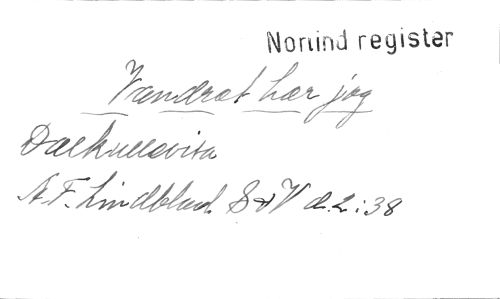 Norlind register
Vandrat har jag
Dalkullevisa
A. F. Lindblad. S&V d.2:38